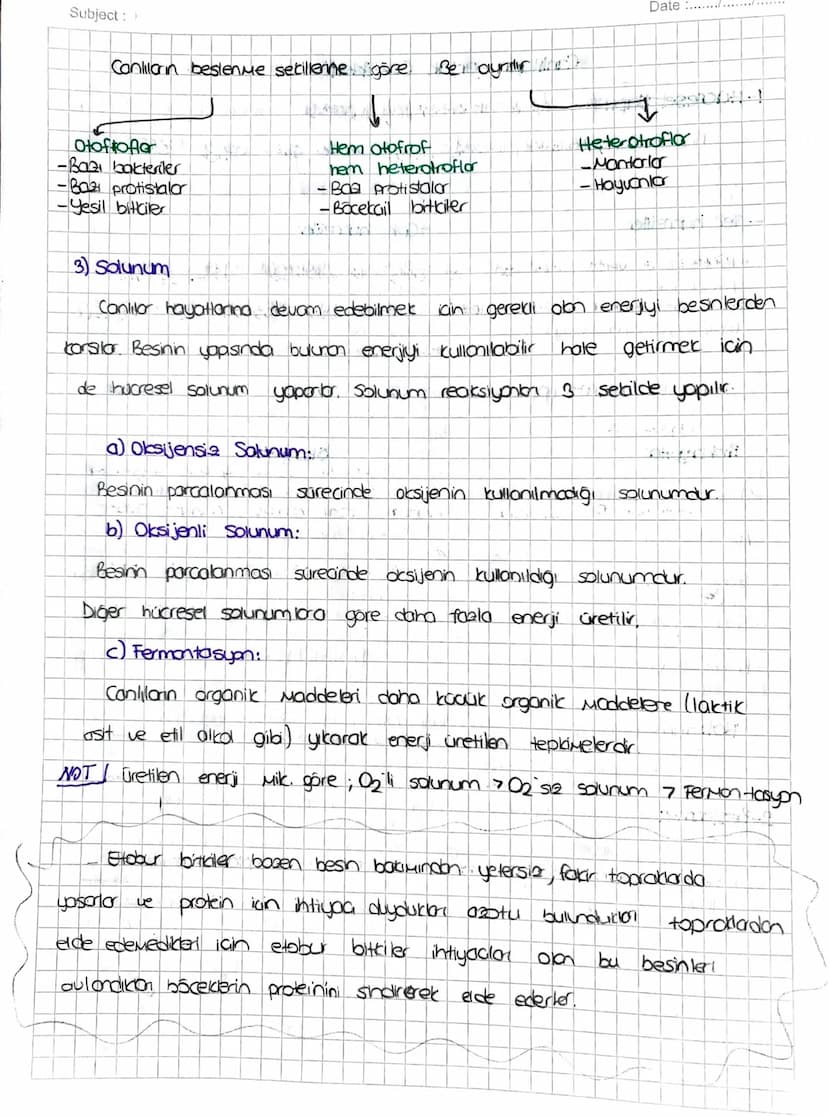 Subject :
Date :......../......../........
Canlıların beslenme sekillerine göre 3e ayrılır
Ototroflar
Hem ototrof
Heterotroflar
-Bazı bakteriler
hem heterotroflar
-Mantarlar
-Bazı protistalar
-Bazı protistalar
-Hayvanlar
-Yesil bitkiler
-Böcekcil bitkiler
3) Solunum
Canlılar hayatlarına devam edebilmek icin gerekli olan enerjiyi besinlerden
karsılar. Besinin yapısında bulunan enerjiyi kullanılabilir hale getirmek icin
de hücresel solunum yaparlar. Solunum reaksiyonları 3 sekilde yapılır.
a) Oksijensiz Solunum:
Besinin parcalanması sürecinde oksijenin kullanılmadığı solunumdur.
b) Oksijenli Solunum:
Besinin parcalanması sürecinde oksijenin kullanıldığı solunumdur.
Diğer hücresel solunumlara göre daha fazla enerji üretilir.
c) Fermantasyon:
Canlıların organik maddeleri daha kücük organik maddelere (laktik
asit ve etil alkol gibi) yıkarak enerji üretilen tepkimelerdir
NOT / üretilen enerji mik. göre ; O2'li solunum > O2'siz solunum > Fermantasyon
- Etobur bitkiler bazen besin bakımından yetersiz, fakir topraklarda
yasarlar ve protein icin ihtiyac duydukları azotu bulundukları topraklardan
elde edemedikleri icin etobur bitkiler ihtiyacları olan bu besinleri
avlandıkları böceklerin proteinini sindirerek elde ederler.